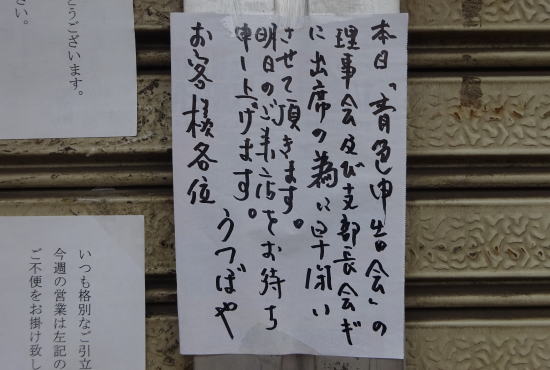 本日「青色申告会」の
理事会及び支部長会ギ
に出席の為に早閉い
させて頂きます。
明日のご来店をお待ち
申し上げます。
うつぼや
お客様各位
とうございます。
さい。
いつも格別なご引立
今週の営業は左記の
ご不便をお掛け致し